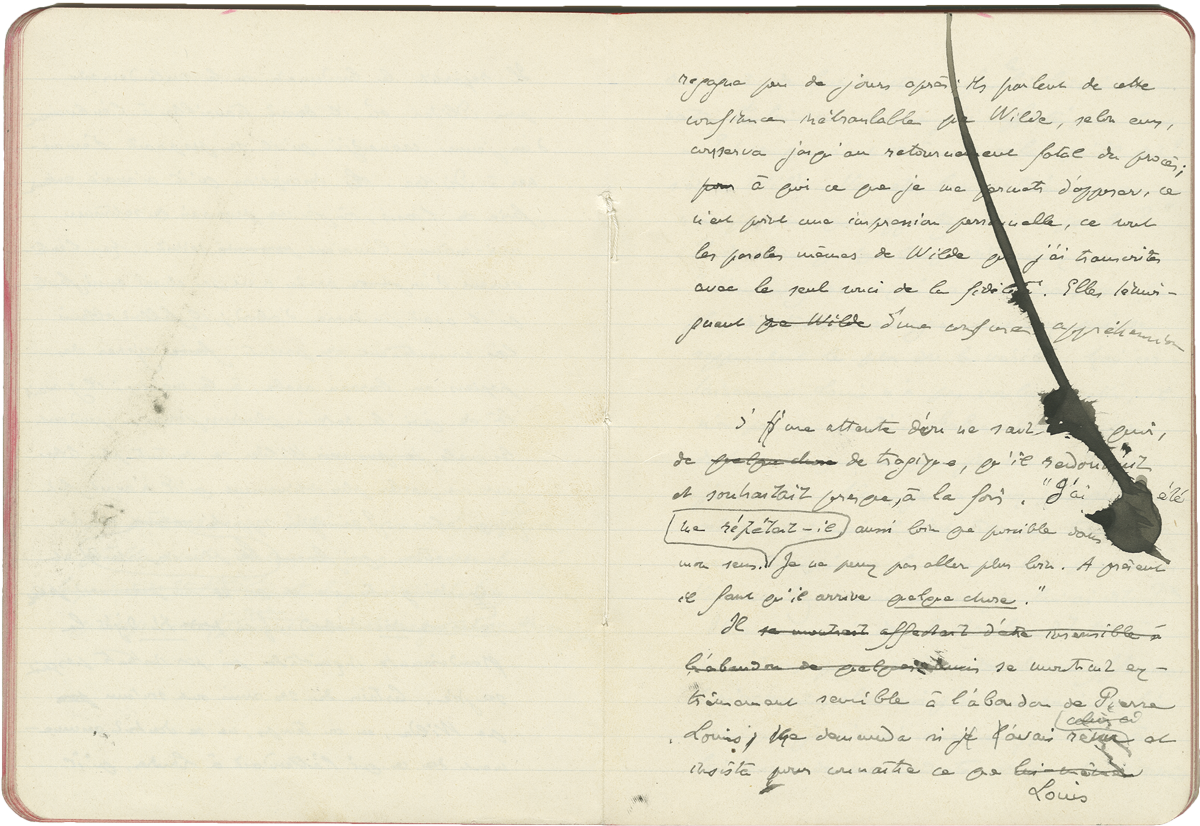 regagna peu de jours après; ils parlent de cette
confiance inébranlable que Wilde, selon eux,
conserva jusqu'au retournement fatal du procès;
pour à quoi ce que je me permets d'opposer, ce
n'est point une impression personnelle, ce sont
les paroles mêmes de Wilde que j'ai transcrites
avec le seul souci de la fidélité. Elles témoi-
gnent que Wilde d'une confuse appréhension
d'une attente d'on ne sait quoi,
de quelque chose de tragique, qu'il redoutait
et souhaitait presque, à la fois. "J'ai été
me répétait-il aussi loin que possible dans
mon sens. Je ne peux pas aller plus loin. A présent
il faut qu'il arrive quelque chose."
Il se montrait affectant d'être insensible à
l'abandon de quelques amis se montrait ex-
trêmement sensible à l'abandon de Pierre
celui-ci
Louis, me demanda si je l'avais revu et
insista pour connaître ce que lui-même
Louis